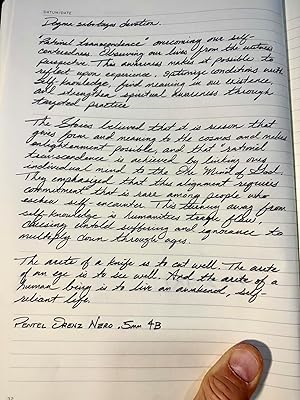 DATUM/DATE
Dogma sabotages devotion.
"Rational transcendence" overcoming our self-
centeredness. Observing our lives from the witness
perspective. This awareness makes it possible to
reflect upon experience, optimize conditions with
self-knowledge, find meaning in our existence,
and strengthen spiritual awareness through
targeted practice.
The Stoics believed that it is reason that
gives form and meaning to the cosmos and makes
enlightenment possible, and that "rational
transcendence" is achieved by linking our
individual mind to the One Mind of God.
They emphasized that this alignment requires
commitment that is rare among people who
eschew self-encounter. This turning away from
self-knowledge is humanities tragic flaw
causing untold suffering and ignorance to
multiply down through ages.
The arete of a knife is to cut well. The arete
of an eye is to see well. And the arete of a
human being is to live an awakened, self-
reliant life.
Pentel Orenz Nero .5mm 4B